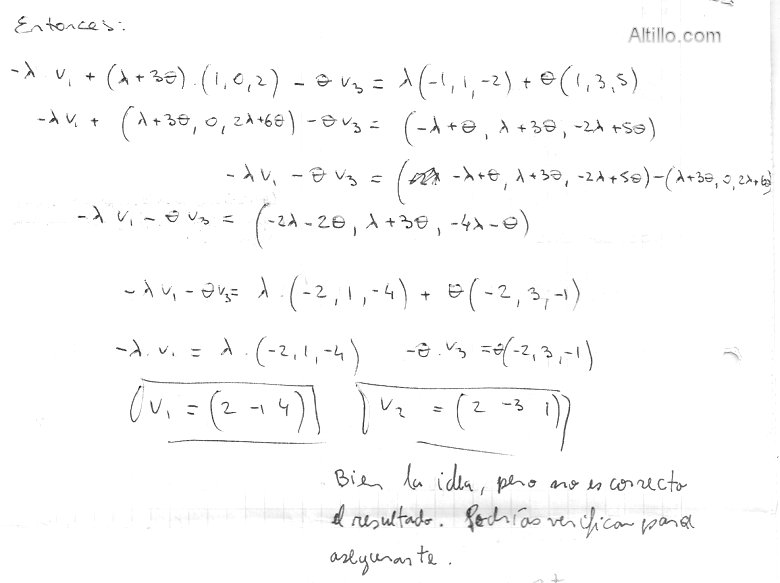 Entonces:
Altillo.com
-λ v₁ + (λ+3θ).(1,0,2) - θ v₃ = λ(-1,1,-2) + θ(1,3,5)
-λv₁ + (λ+3θ, 0, 2λ+6θ) - θv₃ = (-λ+θ, λ+3θ, -2λ+5θ)
-λv₁ - θ v₃ = ( -λ+θ, λ+3θ, -2λ+5θ)-(λ+3θ,0,2λ+6θ)
-λ v₁ - θ v₃ = (-2λ-2θ, λ+3θ, -4λ-θ)
-λv₁ - θv₃= λ.(-2,1,-4) + θ(-2,3,-1)
-λ.v₁ = λ.(-2,1,-4) -θ.v₃ =θ(-2,3,-1)
V₁ = (2 -1 4) V₂ = (2 -3 1)
Bien la idea, pero no es correcto
el resultado. Podrías verificar para
asegurarte.